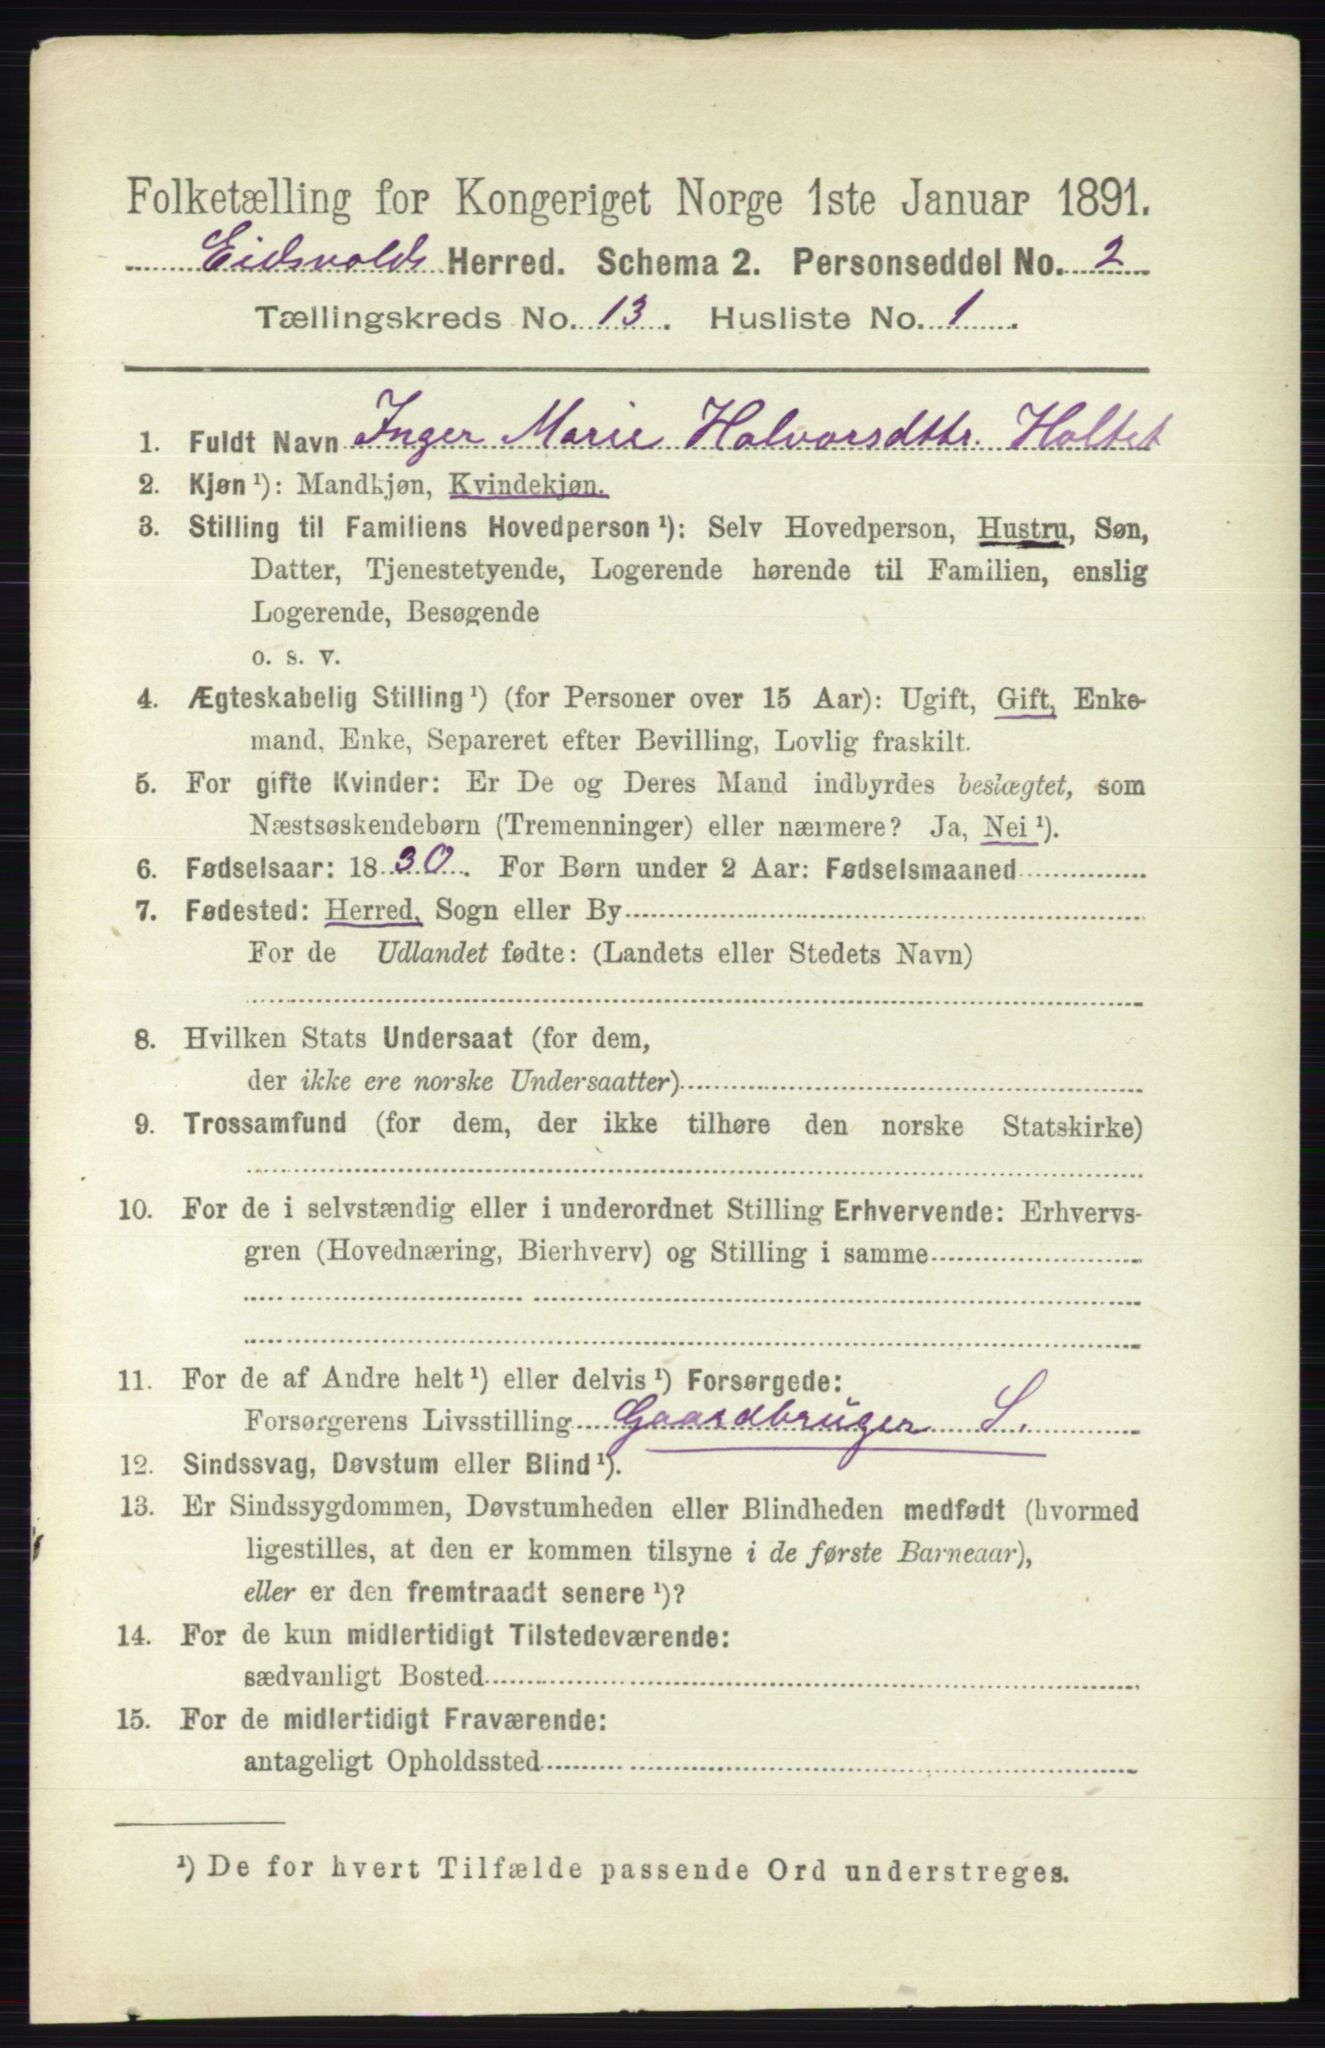 Folketælling for Kongeriget Norge 1ste Januar 1891.
Eidsvolds Herred. Schema 2. Personseddel No. 2
Tællingskreds No. 13. Husliste No. 1.
1. Fuldt Navn Inger Marie Halvorsdttr. Holtet
2. Kjøn ¹): Mandkjøn, Kvindekjøn.
3. Stilling til Familiens Hovedperson ¹): Selv Hovedperson, Hustru, Søn,
Datter, Tjenestetyende, Logerende hørende til Familien, enslig
Logerende, Besøgende
o. s. v.
4. Ægteskabelig Stilling ¹) (for Personer over 15 Aar): Ugift, Gift, Enke-
mand, Enke, Separeret efter Bevilling, Lovlig fraskilt.
5. For gifte Kvinder: Er De og Deres Mand indbyrdes beslægtet, som
Næstsøskendebørn (Tremenninger) eller nærmere? Ja, Nei ¹).
6. Fødselsaar: 1830. For Børn under 2 Aar: Fødselsmaaned
7. Fødested: Herred, Sogn eller By
For de Udlandet fødte: (Landets eller Stedets Navn)
8. Hvilken Stats Undersaat (for dem,
der ikke ere norske Undersaatter)
9. Trossamfund (for dem, der ikke tilhøre den norske Statskirke)
10. For de i selvstændig eller i underordnet Stilling Erhvervende: Erhvervs-
gren (Hovednæring, Bierhverv) og Stilling i samme
11. For de af Andre helt ¹) eller delvis ¹) Forsørgede:
Forsørgerens Livsstilling Gaardbruger S.
12. Sindssvag, Døvstum eller Blind ¹).
13. Er Sindssygdommen, Døvstumheden eller Blindheden medfødt (hvormed
ligestilles, at den er kommen tilsyne i de første Barneaar),
eller er den fremtraadt senere ¹)?
14. For de kun midlertidigt Tilstedeværende:
sædvanligt Bosted
15. For de midlertidigt Fraværende:
antageligt Opholdssted
¹) De for hvert Tilfælde passende Ord understreges.